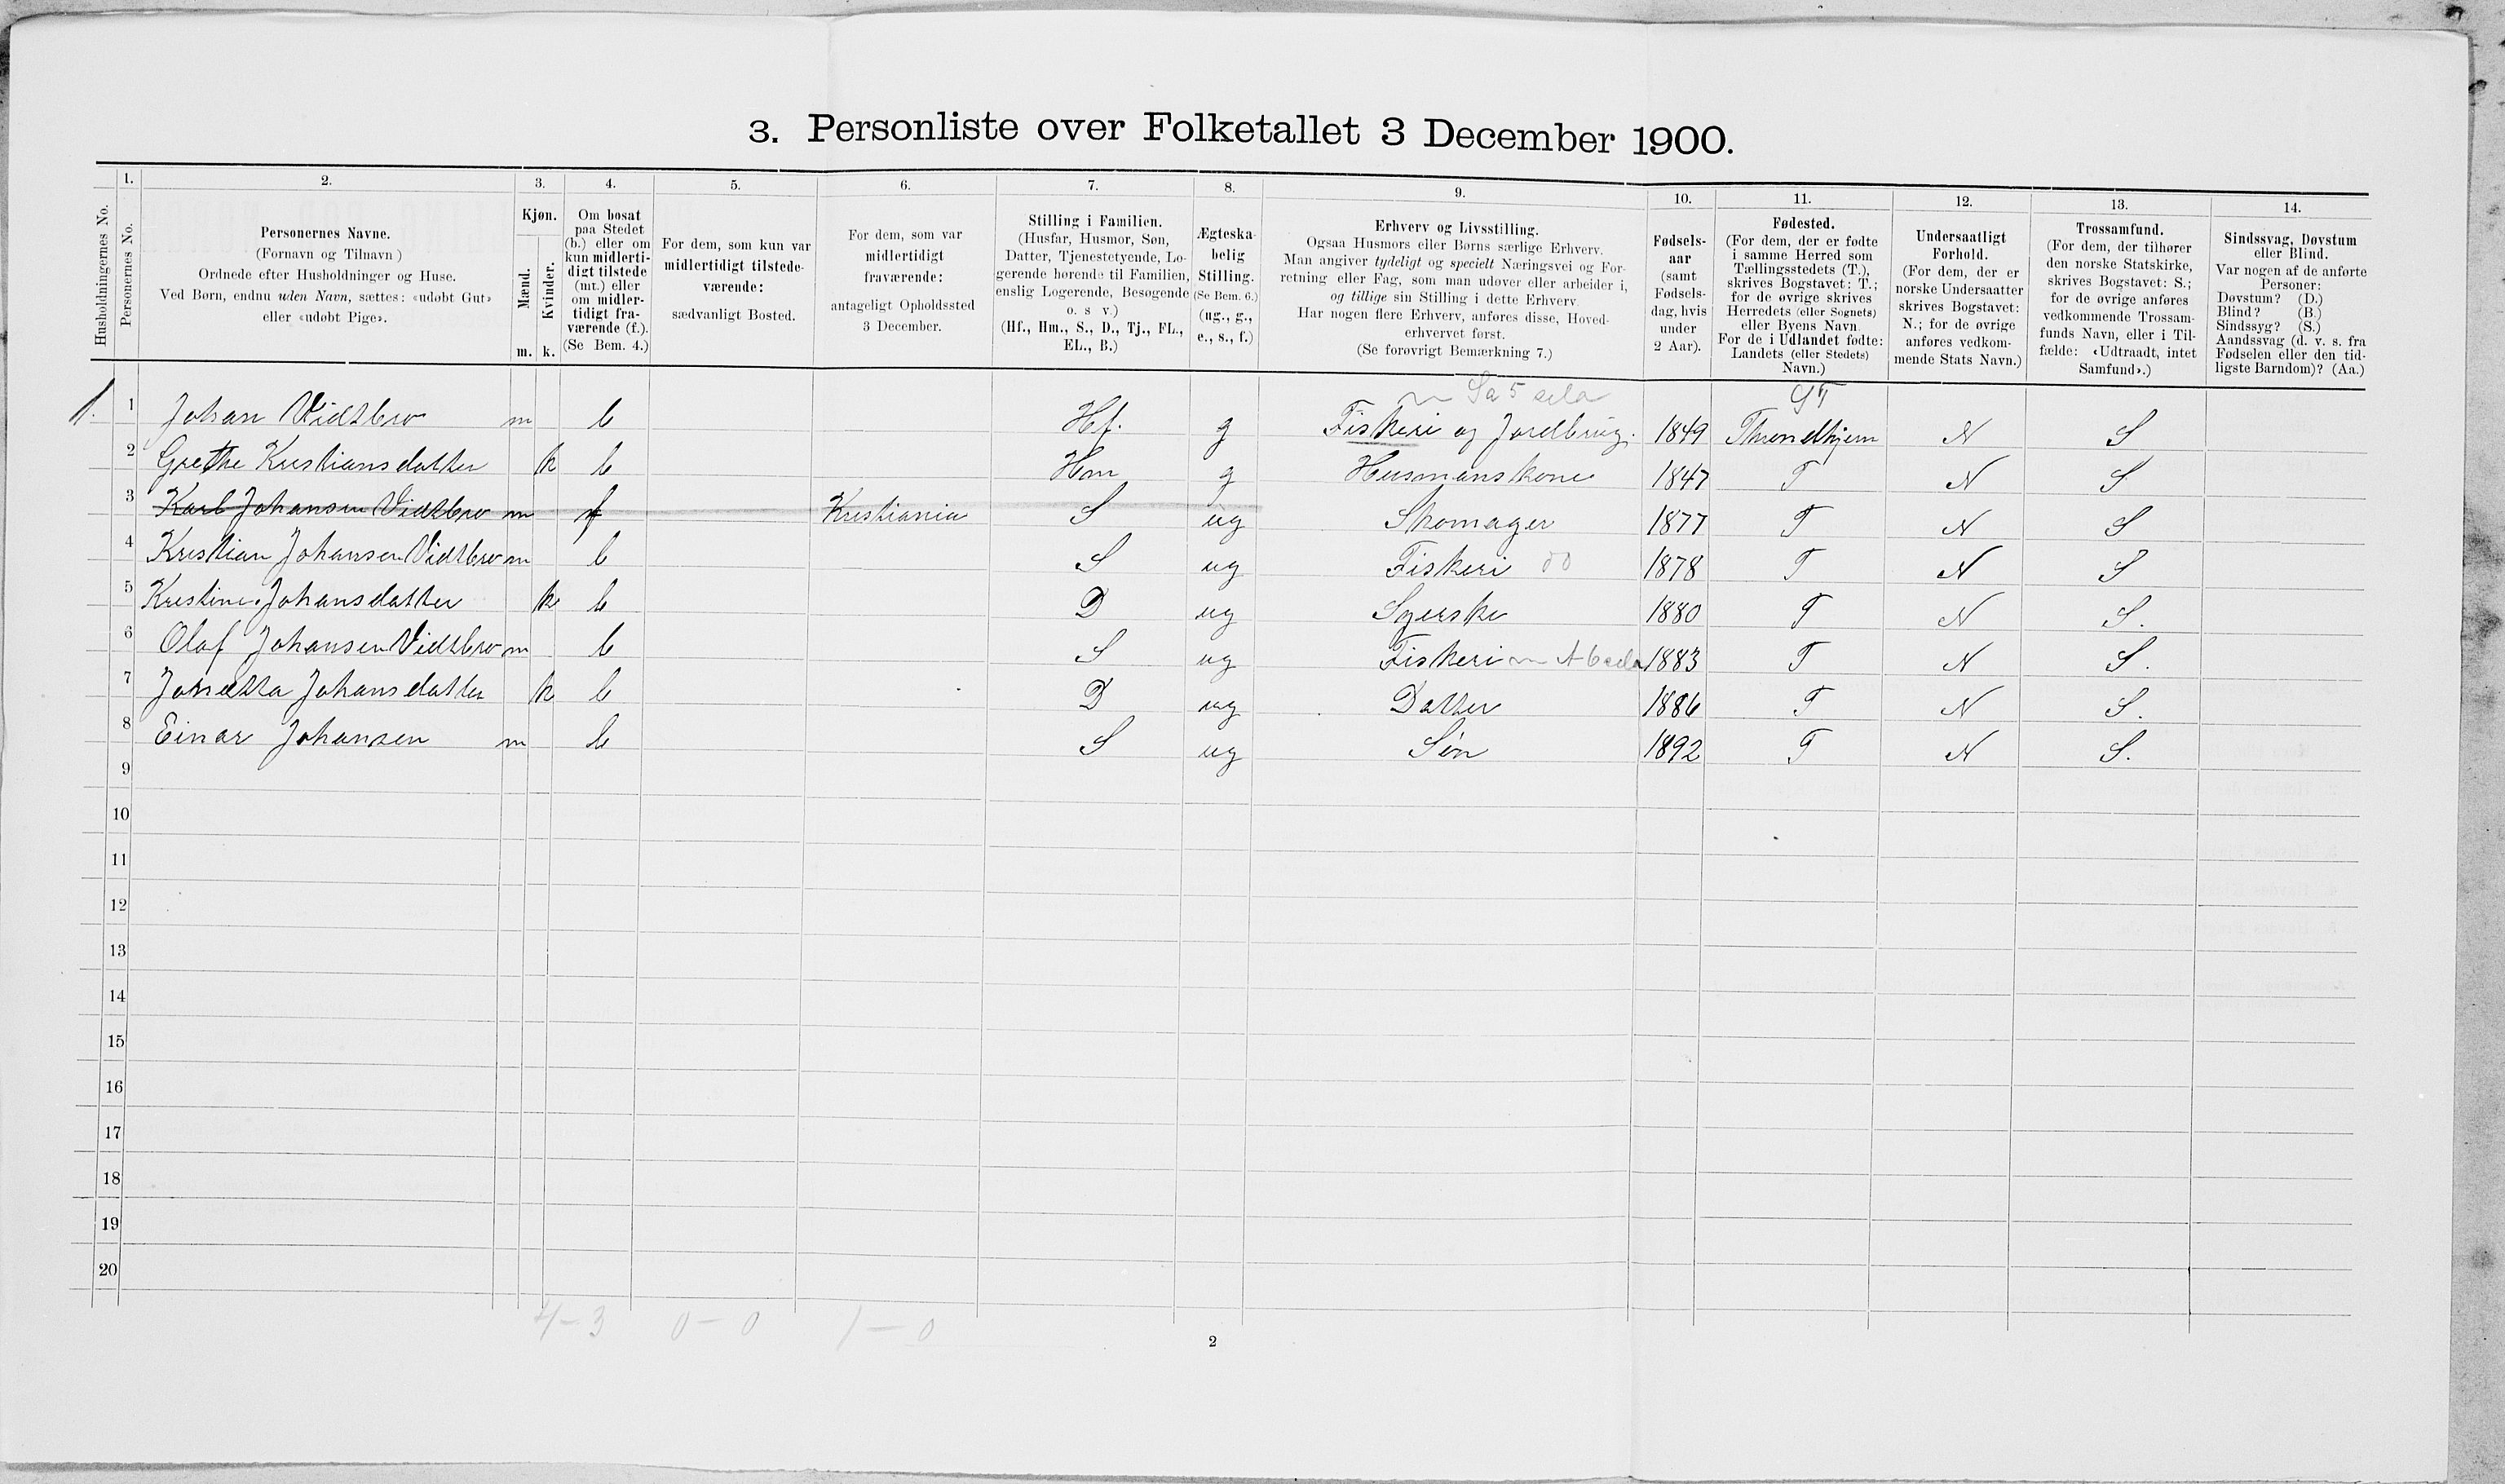 3. Personliste over Folketallet 3 December 1900.
1. 2. 3. 4. 5. 6. 7. 8. 9. 10. 11. 12. 13. 14.
Husholdningernes No.
Personernes No.
Personernes Navne.
(Fornavn og Tilnavn)
Ordnede efter Husholdninger og Huse.
Ved Børn, endnu uden Navn, sættes: «udøbt Gut»
eller «udøbt Pige».
Kjøn.
Mænd.
Kvinder.
m. k.
Om bosat
paa Stedet
(b.) eller om
kun midlerti-
digt tilstede
(mt.) eller
om midler-
tidigt fra-
værende (f.).
(Se Bem. 4.)
For dem, som kun var
midlertidigt tilstede-
værende:
sædvanligt Bosted.
For dem, som var
midlertidigt
fraværende:
antageligt Opholdssted
3 December.
Stilling i Familien.
(Husfar, Husmor, Søn,
Datter, Tjenestetyende, Lo-
gerende hørende til Familien,
enslig Logerende, Besøgende
o. s v.)
(Hf., Hm., S., D., Tj., FL.,
EL., B.)
Ægteska-
belig
Stilling.
(Se Bem. 6.)
(ug., g.,
e., s., f.)
Erhverv og Livsstilling.
Ogsaa Husmors eller Børns særlige Erhverv.
Man angiver tydeligt og specielt Næringsvei og For-
retning eller Fag, som man udøver eller arbeider i,
og tillige sin Stilling i dette Erhverv.
Har nogen flere Erhverv, anføres disse, Hoved-
erhvervet først.
(Se forøvrigt Bemærkning 7.)
Fødsels-
aar
(samt
Fødsels-
dag, hvis
under
2 Aar).
Fødested.
(For dem, der er fødte
i samme Herred som
Tællingsstedets (T.),
skrives Bogstavet: T.;
for de øvrige skrives
Herredets (eller Sognets)
eller Byens Navn.
For de i Udlandet fødte:
Landets (eller Stedets)
Navn.)
Undersaatligt
Forhold.
(For dem, der er
norske Undersaatter
skrives Bogstavet:
N.; for de øvrige
anføres vedkom-
mende Stats Navn.)
Trossamfund.
(For dem, der tilhører
den norske Statskirke,
skrives Bogstavet: S.;
for de øvrige anføres
vedkommende Trossam-
funds Navn, eller i Til-
fælde: «Udtraadt, intet
Samfund».)
Sindssvag, Døvstum
eller Blind.
Var nogen af de anførte
Personer:
Døvstum? (D.)
Blind? (B.)
Sindssyg? (S.)
Aandssvag (d. v. s. fra
Fødselen eller den tid-
ligste Barndom)? (Aa.)
1. 1 Johan Vidsbro m b Hf. g Fiskeri og Jordbrug. 1849 Throndhjem N S
2 Grethe Kristiansdatter k b Hm g Husmanskone 1847 T N S
3 Karl Johansen Vidsbro m f Kristiania S ug Skomager 1877 T N S
4 Kristian Johansen Vidsbro m b S ug Fiskeri do 1878 T N S
5 Kristine Johansdatter k b D ug Syerske 1880 T N S.
6 Olaf Johansen Vidsbro m b S ug Fiskeri 1883 T N S.
7 Jonetta Johansdatter k b D ug Datter 1886 T N S.
8 Einar Johansen m b S ug Søn 1892 T N S.
9
10
11
12
13
14
15
16
17
18
19
20
4-3 0-0 1-0
2